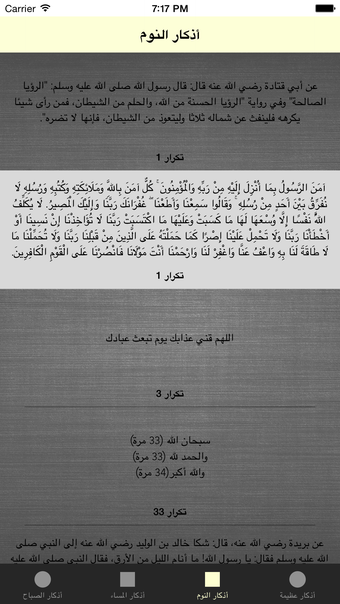 Carrier 7:17 PM
أذكار النوم
عن أبي قتادة رضي الله عنه قال: قال رسول الله صلى الله عليه وسلم: "الرؤيا
الصالحة" وفي رواية "الرؤيا الحسنة من الله، والحلم من الشيطان، فمن رأى شيئا
يكرهه فلينفث عن شماله ثلاثا وليتعوذ من الشيطان، فإنها لا تضره".
تكرار 1
آمَنَ الرَّسُولُ بِمَا أُنْزِلَ إِلَيْهِ مِنْ رَبِّهِ وَالْمُؤْمِنُونَ ۚ كُلٌّ آمَنَ بِاللَّهِ وَمَلَائِكَتِهِ وَكُتُبِهِ وَرُسُلِهِ لَا
نُفَرِّقُ بَيْنَ أَحَدٍ مِنْ رُسُلِهِ ۚ وَقَالُوا سَمِعْنَا وَأَطَعْنَا ۖ غُفْرَانَكَ رَبَّنَا وَإِلَيْكَ الْمَصِيرُ. لَا يُكَلِّفُ
اللَّهُ نَفْسًا إِلَّا وُسْعَهَا لَهَا مَا كَسَبَتْ وَعَلَيْهَا مَا اكْتَسَبَتْ رَبَّنَا لَا تُؤَاخِذْنَا إِنْ نَسِينَا أَوْ
أَخْطَأْنَا رَبَّنَا وَلَا تَحْمِلْ عَلَيْنَا إِصْرًا كَمَا حَمَلْتَهُ عَلَى الَّذِينَ مِنْ قَبْلِنَا رَبَّنَا وَلَا تُحَمِّلْنَا مَا
لَا طَاقَةَ لَنَا بِهِ وَاعْفُ عَنَّا وَاغْفِرْ لَنَا وَارْحَمْنَا أَنْتَ مَوْلَانَا فَانْصُرْنَا عَلَى الْقَوْمِ الْكَافِرِينَ.
تكرار 1
اللهم قني عذابك يوم تبعث عبادك
تكرار 3
سبحان الله (33 مرة)
والحمد لله (33 مرة)
والله أكبر(34 مرة)
تكرار 33
عن بريدة رضي الله عنه، قال: شكا خالد بن الوليد رضي الله عنه إلى النبي صلى
الله عليه وسلم فقال: يا رسول الله! ما أنام الليل من الأرق، فقال النبي صلى الله
أذكار عظيمة
أذكار النوم
أذكار المساء
أذكار الصباح